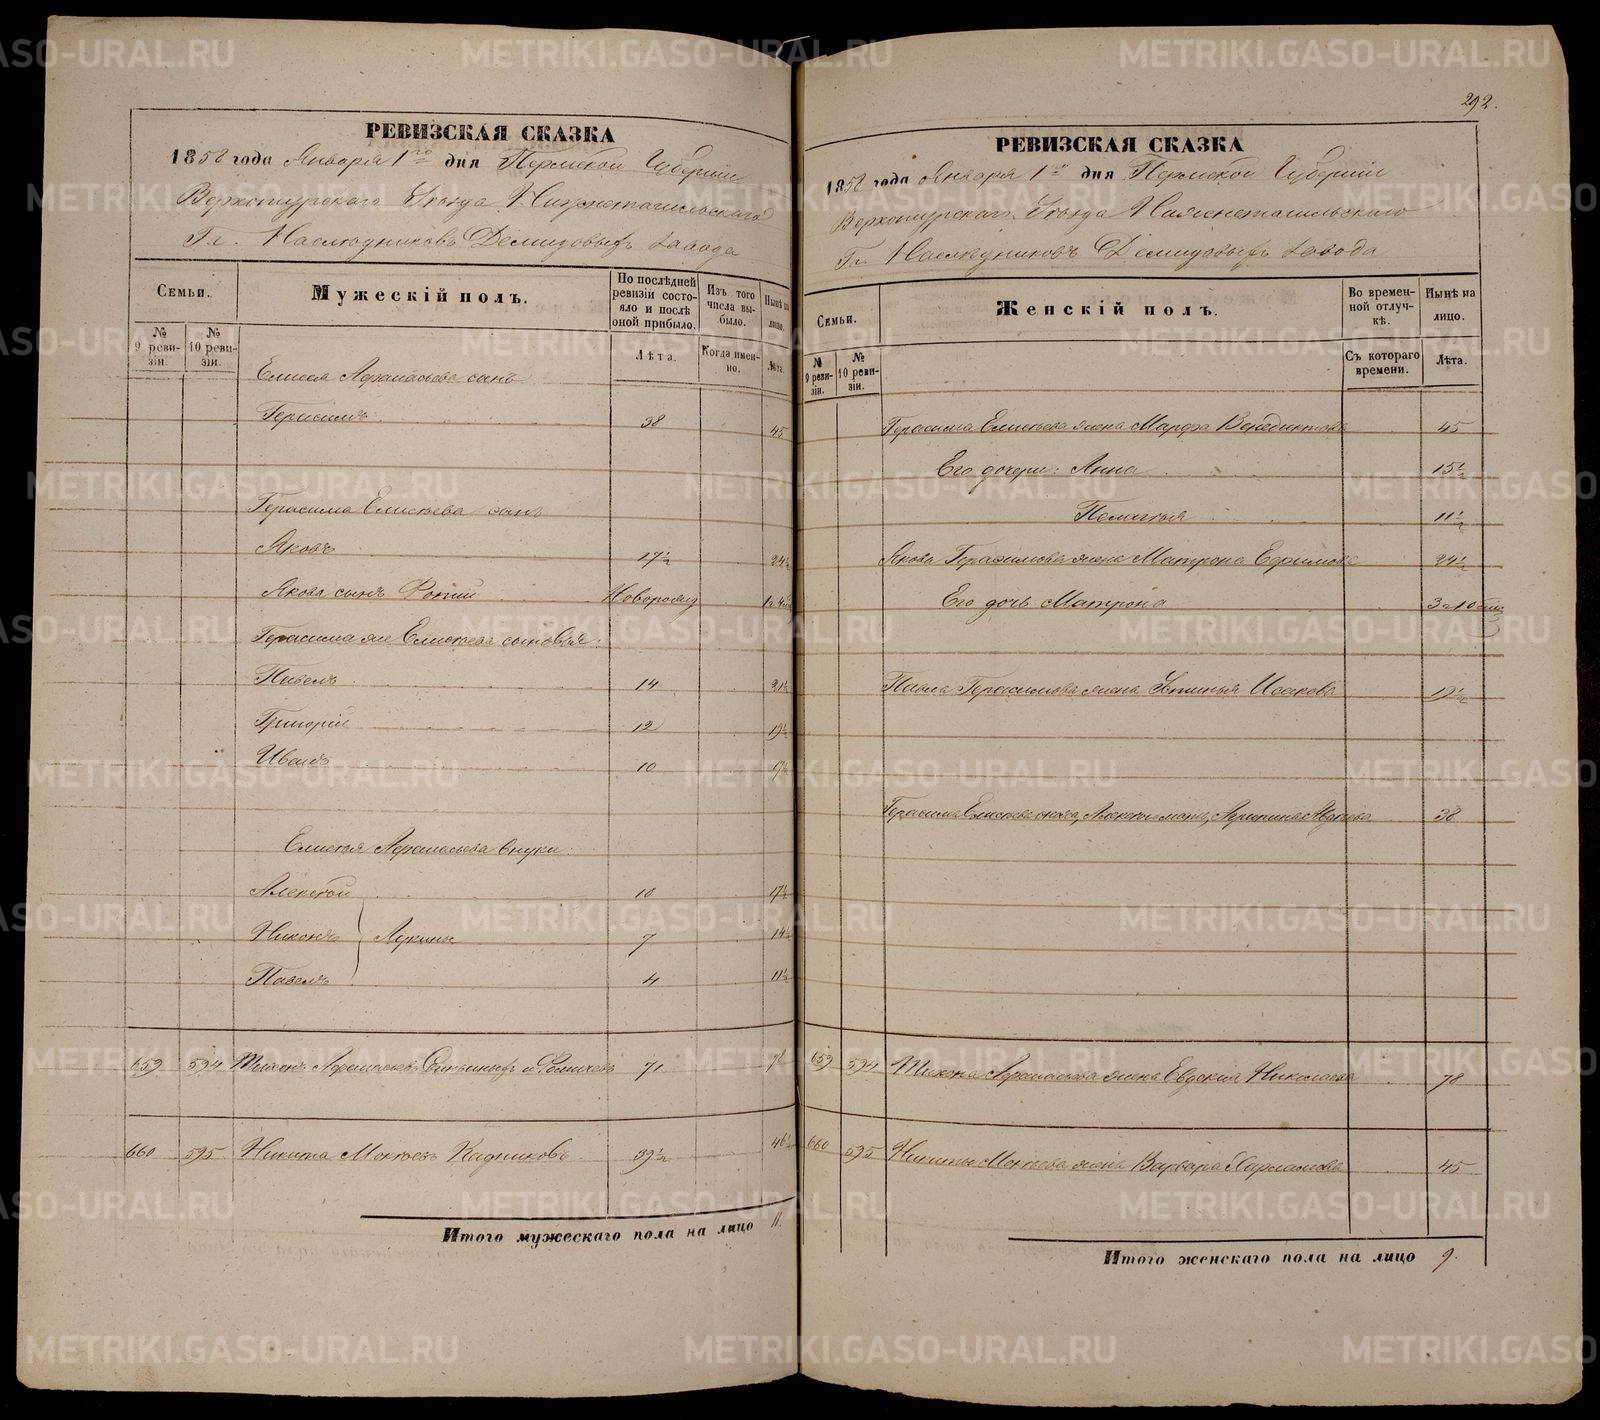 292.
РЕВИЗСКАЯ СКАЗКА
1858 года Января 1го дня Пермской Губернии
Верхотурского Уезда Нижнетагильского
Гг. Наследниковъ Демидовыхъ завода
Семьи.
Мужескій полъ.
По послѣдней ревизіи состояло и послѣ оной прибыло.
Изъ того числа выбыло.
Нынѣ на лицо.
№ 9 ревизіи.
№ 10 ревизіи.
Лѣта.
Когда именно.
Лѣта.
Елисея Афанасьева сынъ
Герасимъ 38 45
Герасима Елисѣева сынъ
Яковъ 17½ 24½
Якова сынъ Новорожд
Герасима же Елисѣева сыновья:
Павелъ 14 21½
Григорій 12 19½
Иванъ 10 17½
Елисѣя Афанасьева внуки:
Алексѣй 10 17½
Никонъ Лукины 7 14½
Павелъ 4 11½
659 594 Тихонъ Афанасьевъ 71
660 595 Никита Мокѣевъ Кадниковъ 39½ 46½
Итого мужескаго пола на лицо 11.
РЕВИЗСКАЯ СКАЗКА
1858 года Января 1го дня Пермской Губерніи
Верхотурскаго Уѣзда Нижнетагильскаго
Гг. Наслѣдниковъ Демидовыхъ завода
Семьи.
Женскій полъ.
Во временной отлучкѣ.
Нынѣ на лицо.
№ 9 ревизіи.
№ 10 ревизіи.
Съ котораго времени.
Лѣта.
Герасима Елисѣева жена Марфа Венедиктова 45
Его дочери: Анна 15½
Пелагѣя 11½
Якова Герасимова жена Матрона Ефимова 24½
Его дочь Матрона
Павла Герасимова жена Устинья Исакова 19½
Герасима Елисѣева сноха, Алексѣя мать, Агрипина Авдѣева 38
659 594 Тихона Афанасьева жена Евдокія Николаева 78
660 595 Никиты Мокѣева жена Варвара Харламова 45
Итого женскаго пола на лицо 9.
METRIKI.GASO-URAL.RU